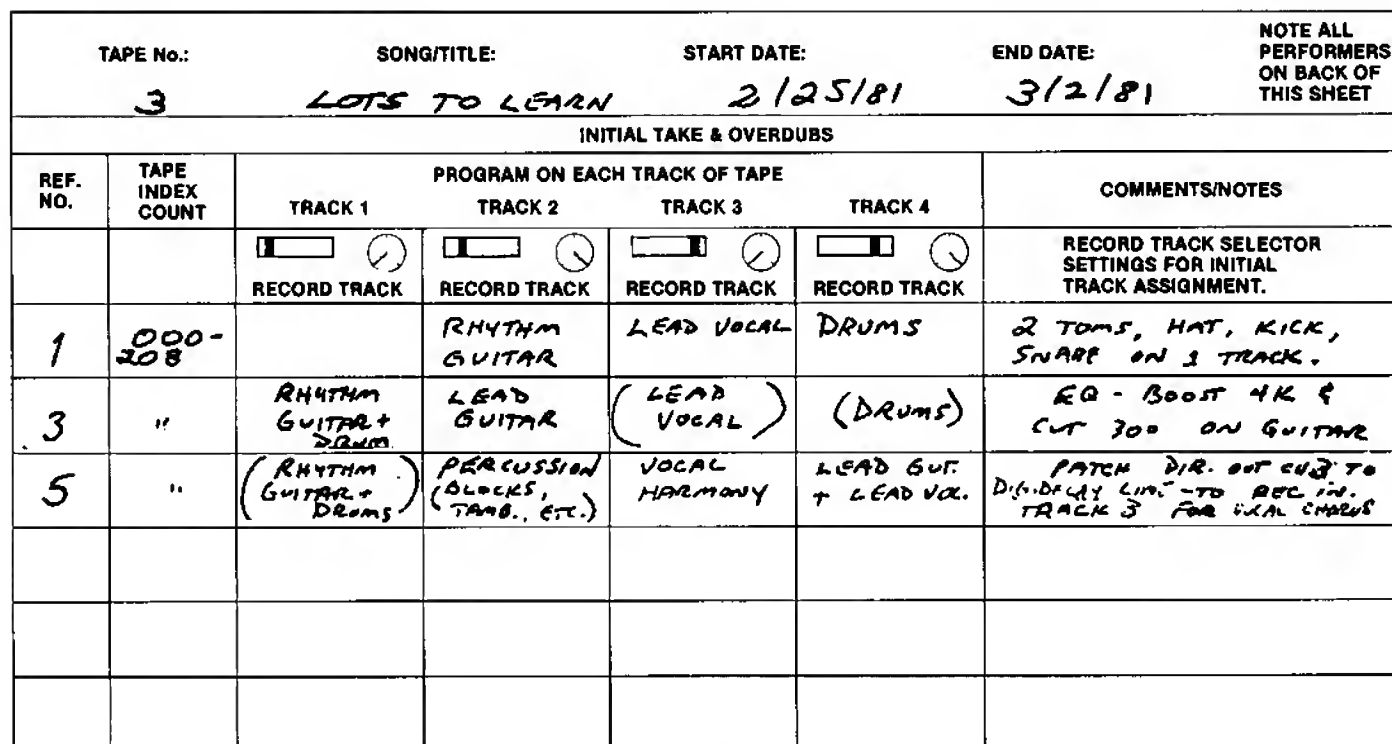 TAPE No.: SONG/TITLE: START DATE: END DATE: NOTE ALL
PERFORMERS
ON BACK OF
THIS SHEET
3 LOTS TO LEARN 2/25/81 3/2/81
INITIAL TAKE & OVERDUBS
REF.
NO.
TAPE
INDEX
COUNT
PROGRAM ON EACH TRACK OF TAPE
TRACK 1 TRACK 2 TRACK 3 TRACK 4
COMMENTS/NOTES
RECORD TRACK RECORD TRACK RECORD TRACK RECORD TRACK
RECORD TRACK SELECTOR
SETTINGS FOR INITIAL
TRACK ASSIGNMENT.
1
000-
208
RHYTHM
GUITAR
LEAD VOCAL
DRUMS
2 TOMS, HAT, KICK,
SNARE ON 1 TRACK.
3
"
RHYTHM
GUITAR +
DRUM
LEAD
GUITAR
(LEAD
VOCAL)
(DRUMS)
EQ - BOOST 4K &
CUT 300 ON GUITAR
5
"
(RHYTHM
GUITAR +
DRUMS)
PERCUSSION
(BLOCKS,
TAMB., ETC.)
VOCAL
HARMONY
LEAD GUT.
+ LEAD VOC.
PATCH DIR. OUT TO
DIG. DELAY LINE - TO REC IN.
TRACK 3 FOR VOCAL CHORUS